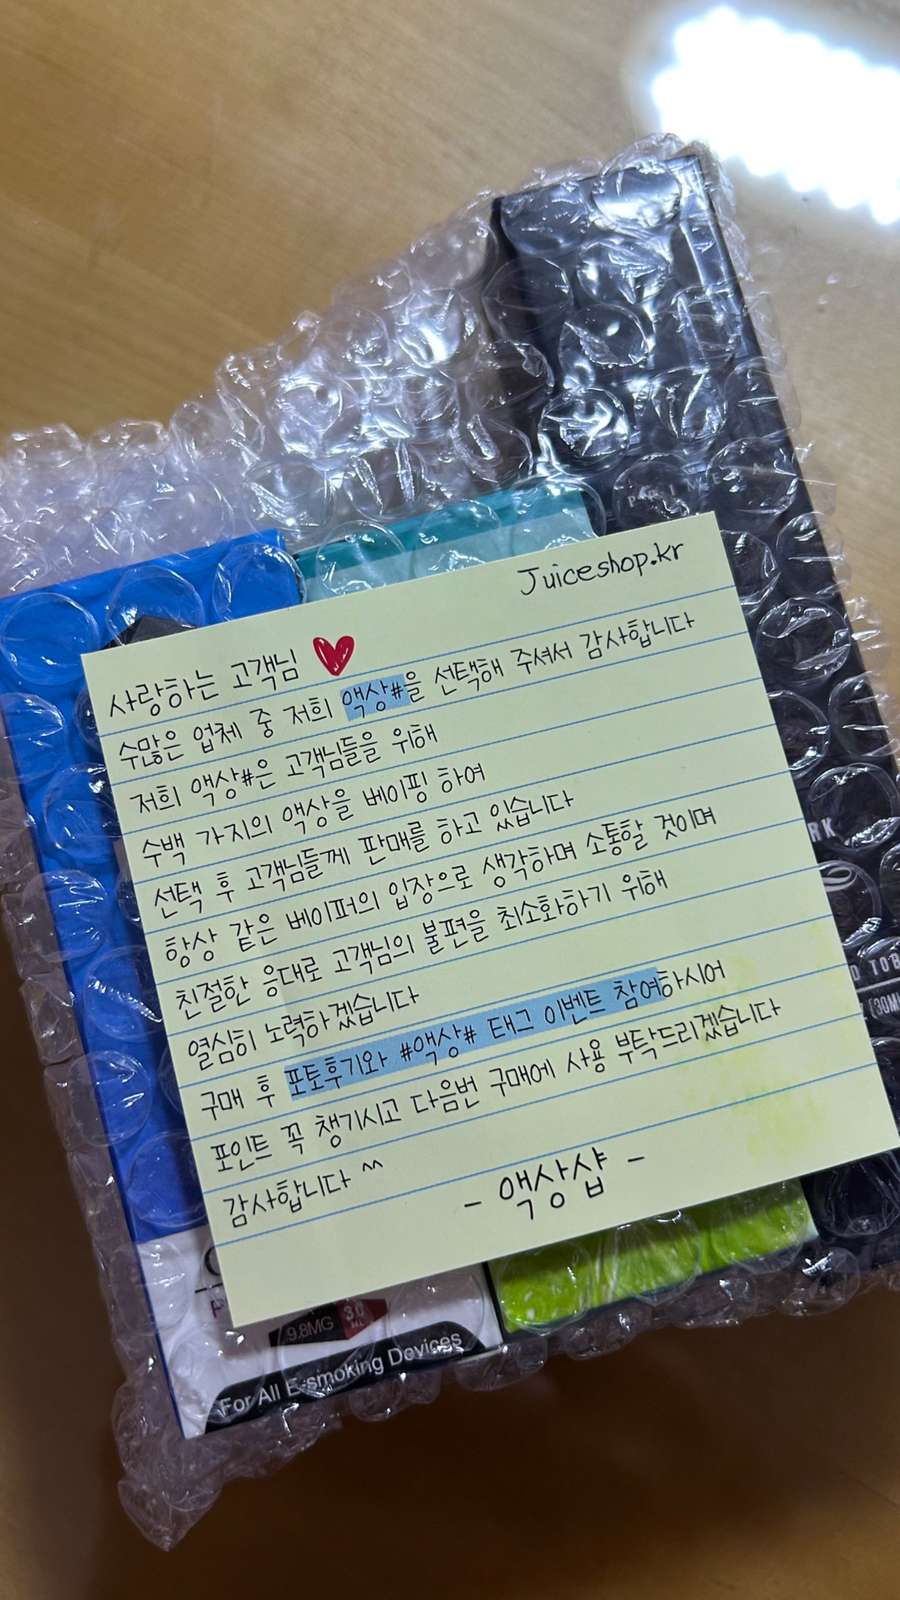 Juiceshop.kr
사랑하는 고객님
수많은 업체 중 저희 액상#을 선택해 주셔서 감사합니다
저희 액상#은 고객님들을 위해
수백 가지의 액상을 베이핑 하여
선택 후 고객님들께 판매를 하고 있습니다
항상 같은 베이퍼의 입장으로 생각하며 소통할 것이며
친절한 응대로 고객님의 불편을 최소화하기 위해
열심히 노력하겠습니다
구매 후 포토후기와 #액상# 태그 이벤트 참여하시어
포인트 꼭 챙기시고 다음번 구매에 사용 부탁드리겠습니다
감사합니다 ^^
- 액상샵 -
9.8MG
For All E-smoking Devices